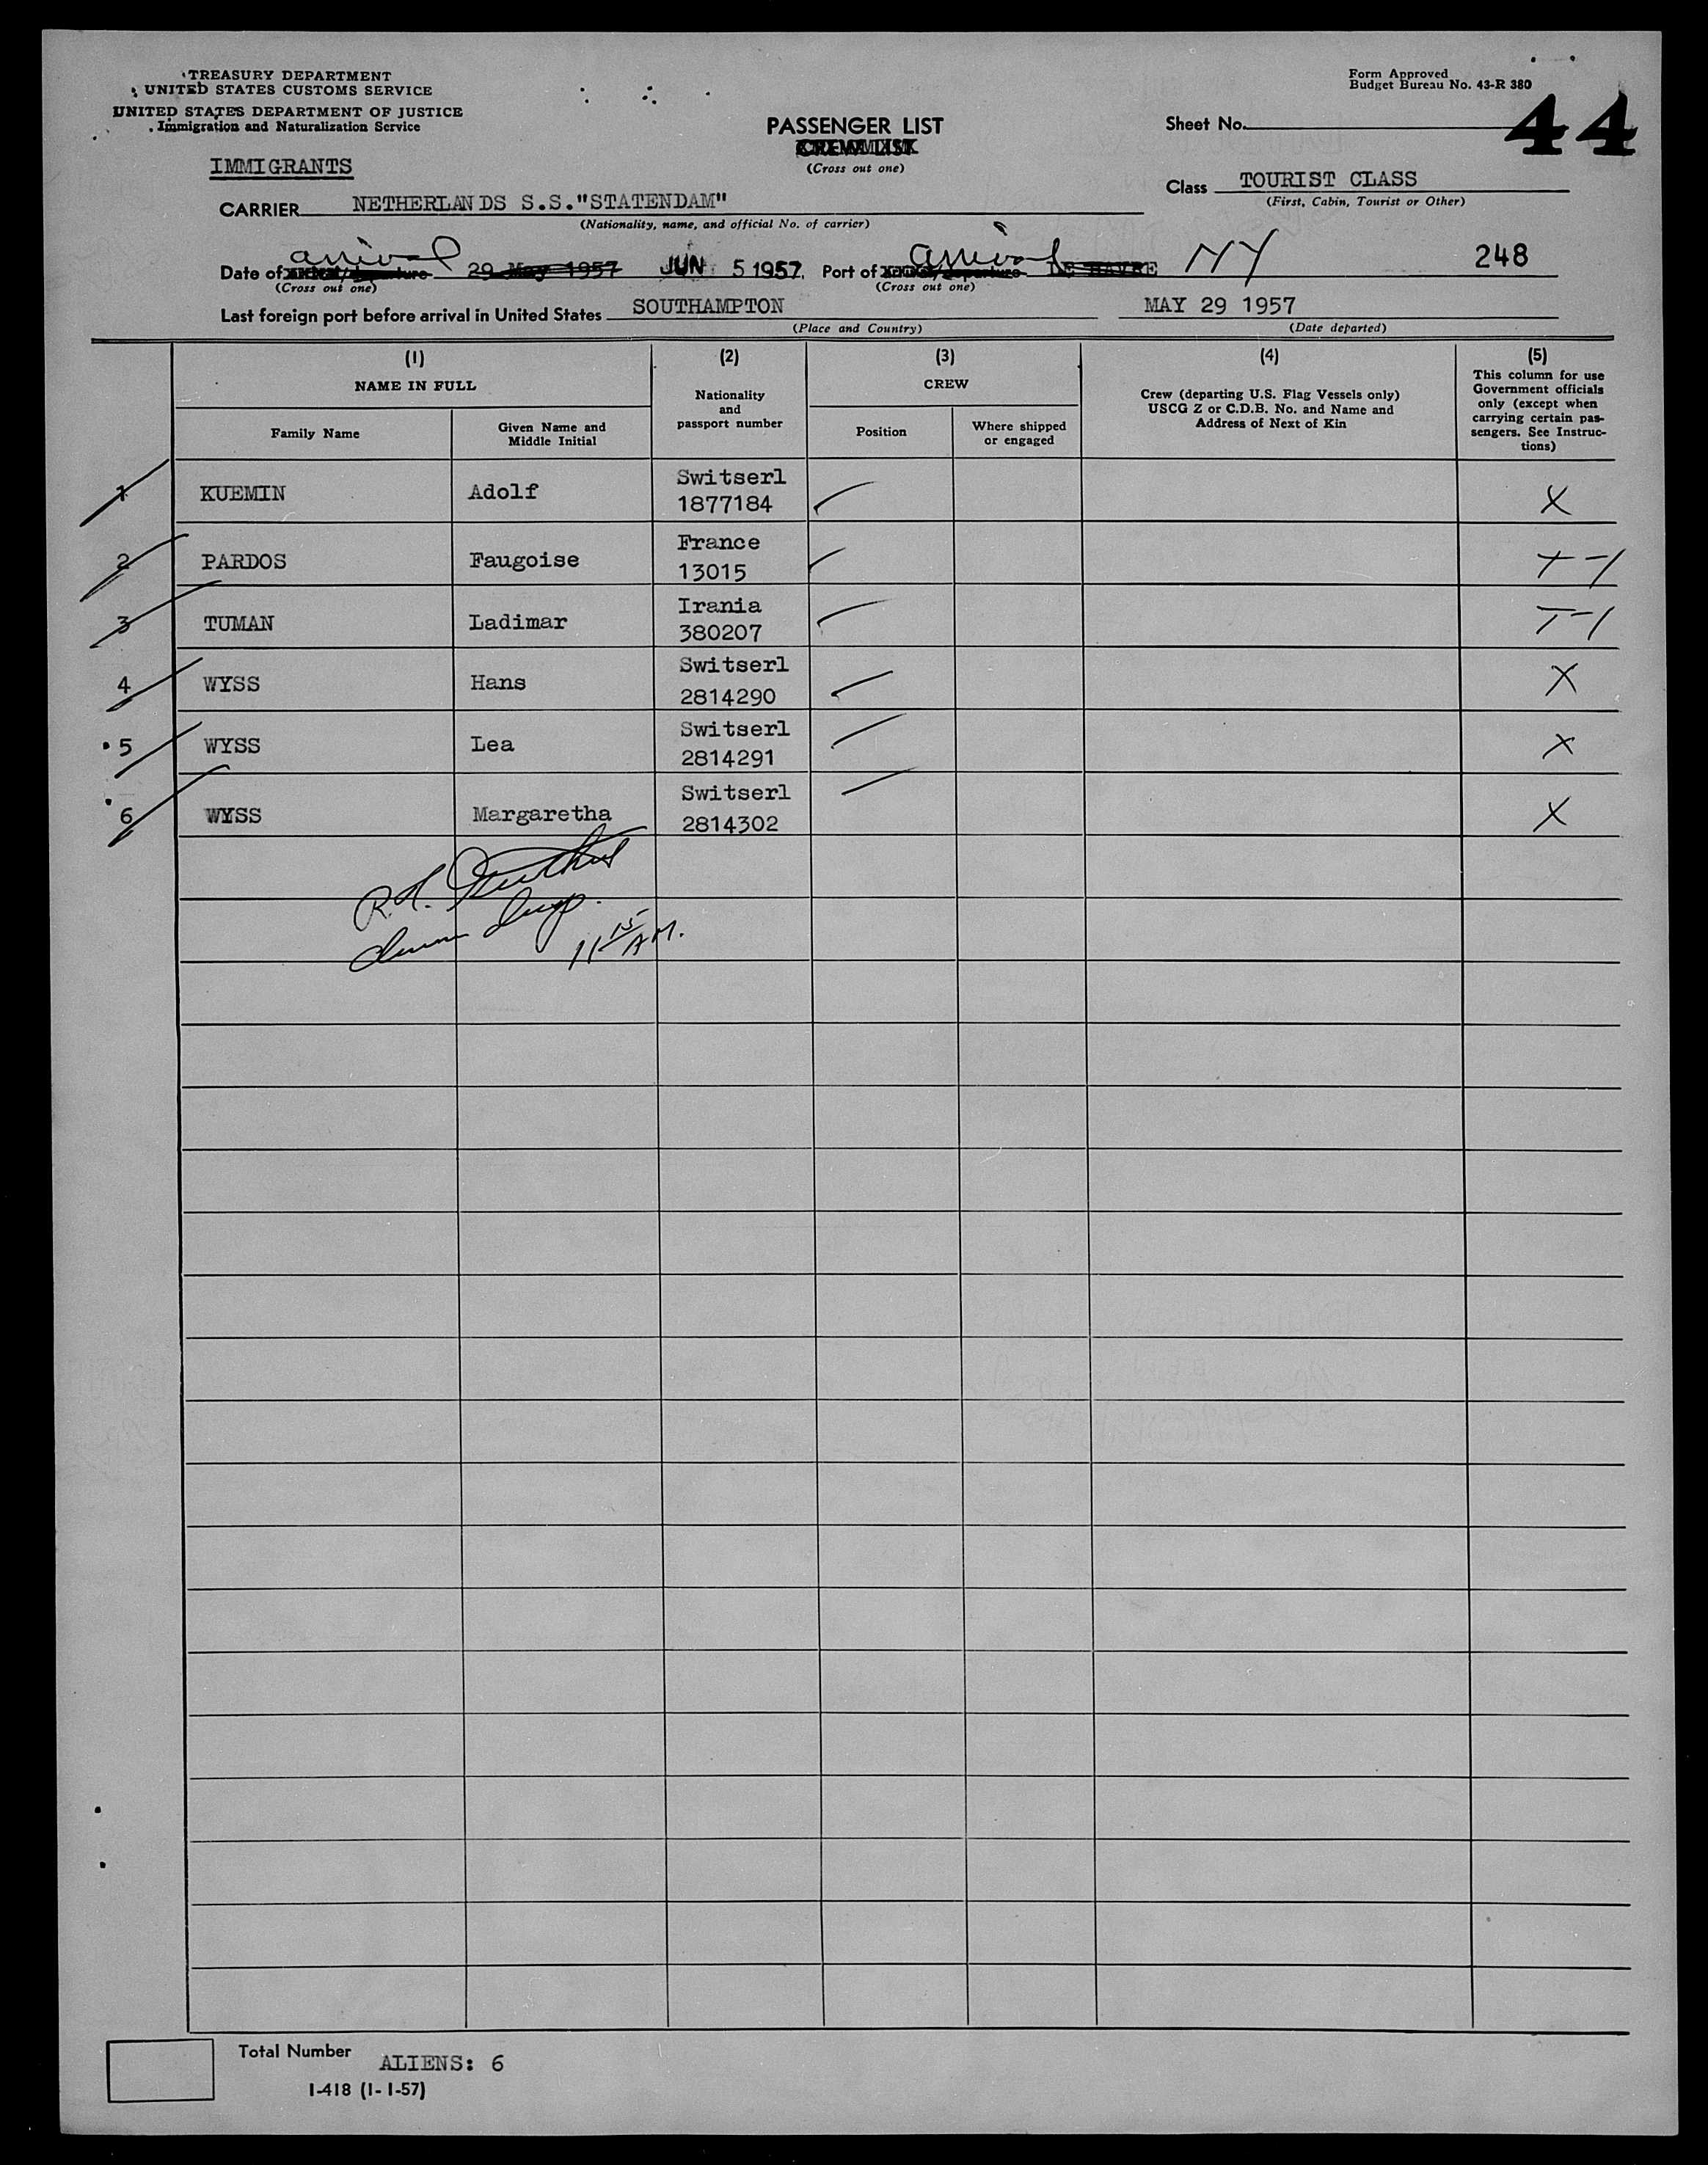 TREASURY DEPARTMENT
UNITED STATES CUSTOMS SERVICE
UNITED STATES DEPARTMENT OF JUSTICE
Immigration and Naturalization Service
Form Approved
Budget Bureau No. 43-R 380
PASSENGER LIST
CREW LIST
(Cross out one)
Sheet No. 44
IMMIGRANTS
Class TOURIST CLASS
(First, Cabin, Tourist or Other)
CARRIER NETHERLANDS S.S."STATENDAM"
(Nationality, name, and official No. of carrier)
arrival arrival
Date of arrival/departure 29 May 1957 JUN 5 1957 Port of arrival/departure LE HAVRE NY 248
(Cross out one) (Cross out one)
Last foreign port before arrival in United States SOUTHAMPTON MAY 29 1957
(Place and Country) (Date departed)
(1) (2) (3) (4) (5)
NAME IN FULL
Family Name
Given Name and
Middle Initial
Nationality
and
passport number
CREW
Position
Where shipped
or engaged
Crew (departing U.S. Flag Vessels only)
USCG Z or C.D.B. No. and Name and
Address of Next of Kin
This column for use
Government officials
only (except when
carrying certain pas-
sengers. See Instruc-
tions)
1 KUEMIN Adolf Switserl 1877184 X
2 PARDOS Faugoise France 13015
3 TUMAN Ladimar Irania 380207
4 WYSS Hans Switserl 2814290 X
5 WYSS Lea Switserl 2814291 X
6 WYSS Margaretha Switserl 2814302 X
R.H.
11 15 A.M.
Total Number ALIENS: 6
I-418 (1-1-57)